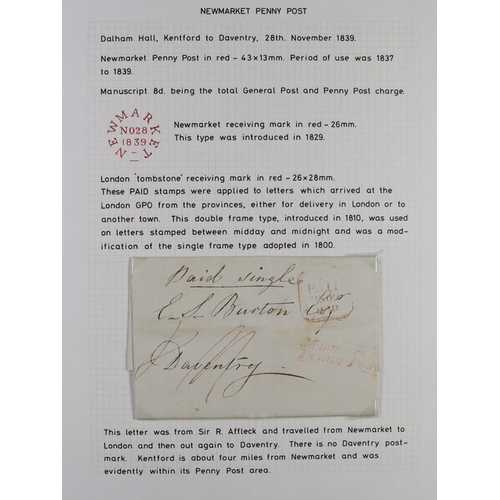 NEWMARKET PENNY POST
Dalham Hall, Kentford to Daventry, 28th. November 1839.
Newmarket Penny Post in red - 43×13mm. Period of use was 1837
to 1839.
Manuscript 8d. being the total General Post and Penny Post charge.
NEWMARKET
NO28
1839
Newmarket receiving mark in red - 26mm.
This type was introduced in 1829.
London 'tombstone' receiving mark in red - 26×28mm.
These PAID stamps were applied to letters which arrived at the
London GPO from the provinces, either for delivery in London or to
another town. This double frame type, introduced in 1810, was used
on letters stamped between midday and midnight and was a mod-
ification of the single frame type adopted in 1800.
Paid single
E. S. Burton Esqr
Daventry
Newmarket
Penny Post
This letter was from Sir R. Affleck and travelled from Newmarket to
London and then out again to Daventry. There is no Daventry post-
mark. Kentford is about four miles from Newmarket and was
evidently within its Penny Post area.